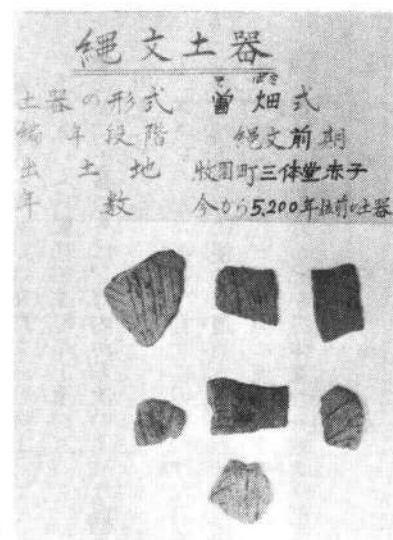 縄文土器
土器の形式 曽畑式
編年段階 縄文前期
出土地 牧園町三体堂赤子
年数 今から5,200年位前の土器